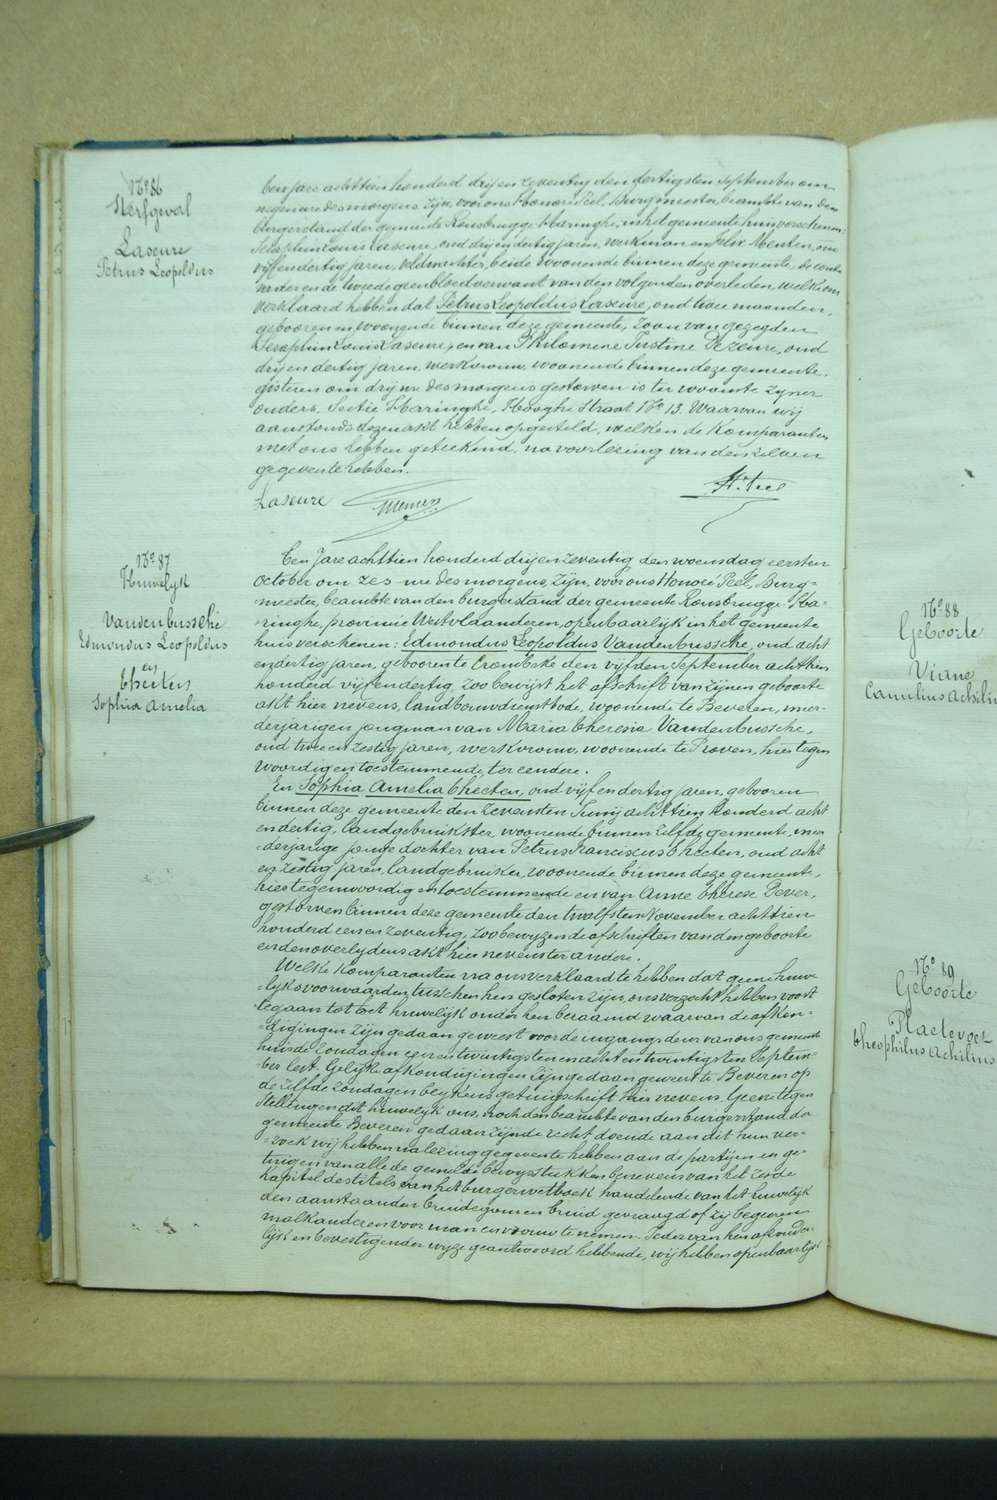 No 86
Sterfgeval
Laseure
Petrus Leopoldus
Ten jare achttien honderd drij en zeventig den dertigsten September om
negen ure des morgens, zijn, voor ons Honoré Peel, Burgmeester, beambte van den
burgerstand der gemeente Rousbrugge-Haringhe, in het gemeente huis verschenen:
Seraphin Louis Laseure, oud drij en dertig jaren, werkman en Felix Menten, oud
vijf en dertig jaren, veldwachter, beide woonende binnen deze gemeente, de eerste
vader en de tweede geen bloedverwant van den volgenden overleden, welke ons
verklaard hebben dat Petrus Leopoldus Laseure, oud twee maanden,
geboren en woonende binnen deze gemeente, zoon van gezegden
Seraphin Louis Laseure, en van Philomene Justine Dezeure, oud
drij en dertig jaren, werkvrouw, woonende binnen deze gemeente,
gisteren om drij ure des morgens gestorven is ter woonste zijner
ouders, Sectie Haringhe, Hooghe Straat No 13. Waarvan wij
aanstonds dezen akt hebben opgesteld, welken de Komparanten
met ons hebben geteekend, na voorlezing van denzelven
gegeven te hebben.
Laseure
Hre Peel
No 87
Huwelijk
Vandenbussche
Edmondus Leopoldus
en
Theeten
Sophia Amelia
Ten Jare achttien honderd drij en zeventig den woensdag eersten
October om zes ure des morgens, zijn, voor ons Honoré Peel, Burg-
meester, beambte van den burgerstand der gemeente Rousbrugge-Ha-
ringhe, provincie Westvlaanderen, openbaarlijk in het gemeente
huis verschenen: Edmondus Leopoldus Vandenbussche, oud acht
en dertig jaren, geboren te Crombeke den vijfden September achttien
honderd vijf en dertig, zoo bewijst het afschrift van zijnen geboorte
akt hier nevens, landbouwdienstbode, woonende te Beveren, meer-
derjarigen jongman van Maria Theresia Vandenbussche,
oud twee en zestig jaren, werkvrouw, woonende te Proven, hier tegen
woordig en toestemmende, ter eendere.
En Sophia Amelia Theeten, oud vijf en dertig jaren, geboren
binnen deze gemeente den zevensten Junij achttien honderd acht
en dertig, landgebruikster, woonende binnen zelfde gemeente, meer
derjarige jonge dochter van Petrus Franciscus Theeten, oud acht
en zestig jaren, landgebruiker, woonende binnen deze gemeente,
hier tegenwoordig en toestemmende en van Anne Therese Dever,
gestorven binnen deze gemeente den twalfsten November achttien
honderd een en zeventig, zoo bewijzen de afschriften van den geboorte
en den overlijdens akt hier nevens ter andere.
Welke Komparanten na ons verklaard te hebben dat geene huwe-
lijksvoorwaarden tusschen hen gesloten zijn, ons verzocht hebben voort
te gaan tot het huwelijk onder hen beraamd waarvan de afkon-
digingen zijn gedaan geweest voor de ingangs deur van ons gemeente
huis de Zondagen een en twintigsten en acht en twintigsten Septem-
ber lest. Gelijke afkondigingen zijn gedaan geweest te Beveren op
de zelfde zondagen blijkens getuigschrift hier nevens. Geene tegen
stellingen dit huwelijk ons, noch den beambte van den burgerstand der
gemeente Beveren gedaan zijnde recht doende aan dit hun ver-
zoek wij hebben na lezing gegeven te hebben aan de partijen en ge-
tuigen van alle de gemelde bewijsstukken benevens van het zesde
kapitel des titels van het burgerwetboek handelende van het huwelijk
den aanstaanden bruidegom en bruid gevraagd of zij begeeren
malkanderen voor man en vrouw te nemen. Ieder van hen afzonder-
lijk en bevestigender wyze geantwoord hebbende, wij hebben openbaarlijk
No 88
Geboorte
Viane
Camilius Achili
No 89
Geboorte
Plaetevoet
Theophilus Achilius